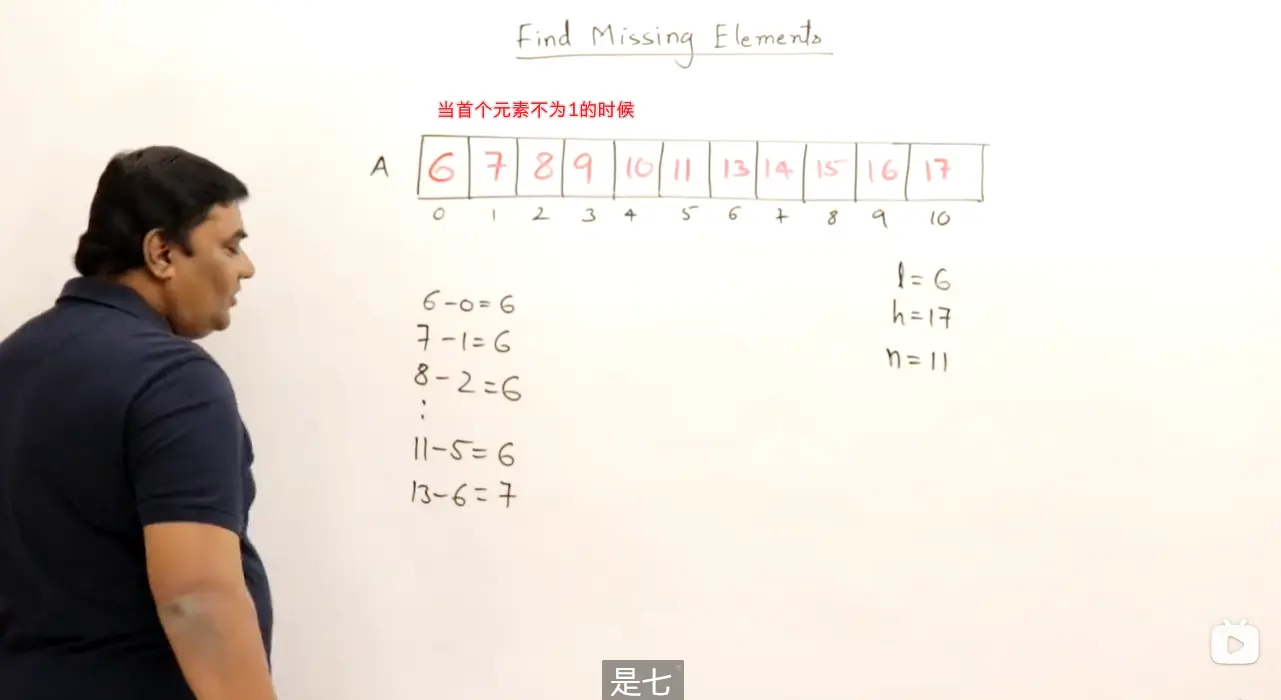 Find Missing Elements
当首个元素不为1的时候
A 6 7 8 9 10 11 13 14 15 16 17
0 1 2 3 4 5 6 7 8 9 10
l = 6
h = 17
n = 11
6 - 0 = 6
7 - 1 = 6
8 - 2 = 6
:
11 - 5 = 6
13 - 6 = 7
是七